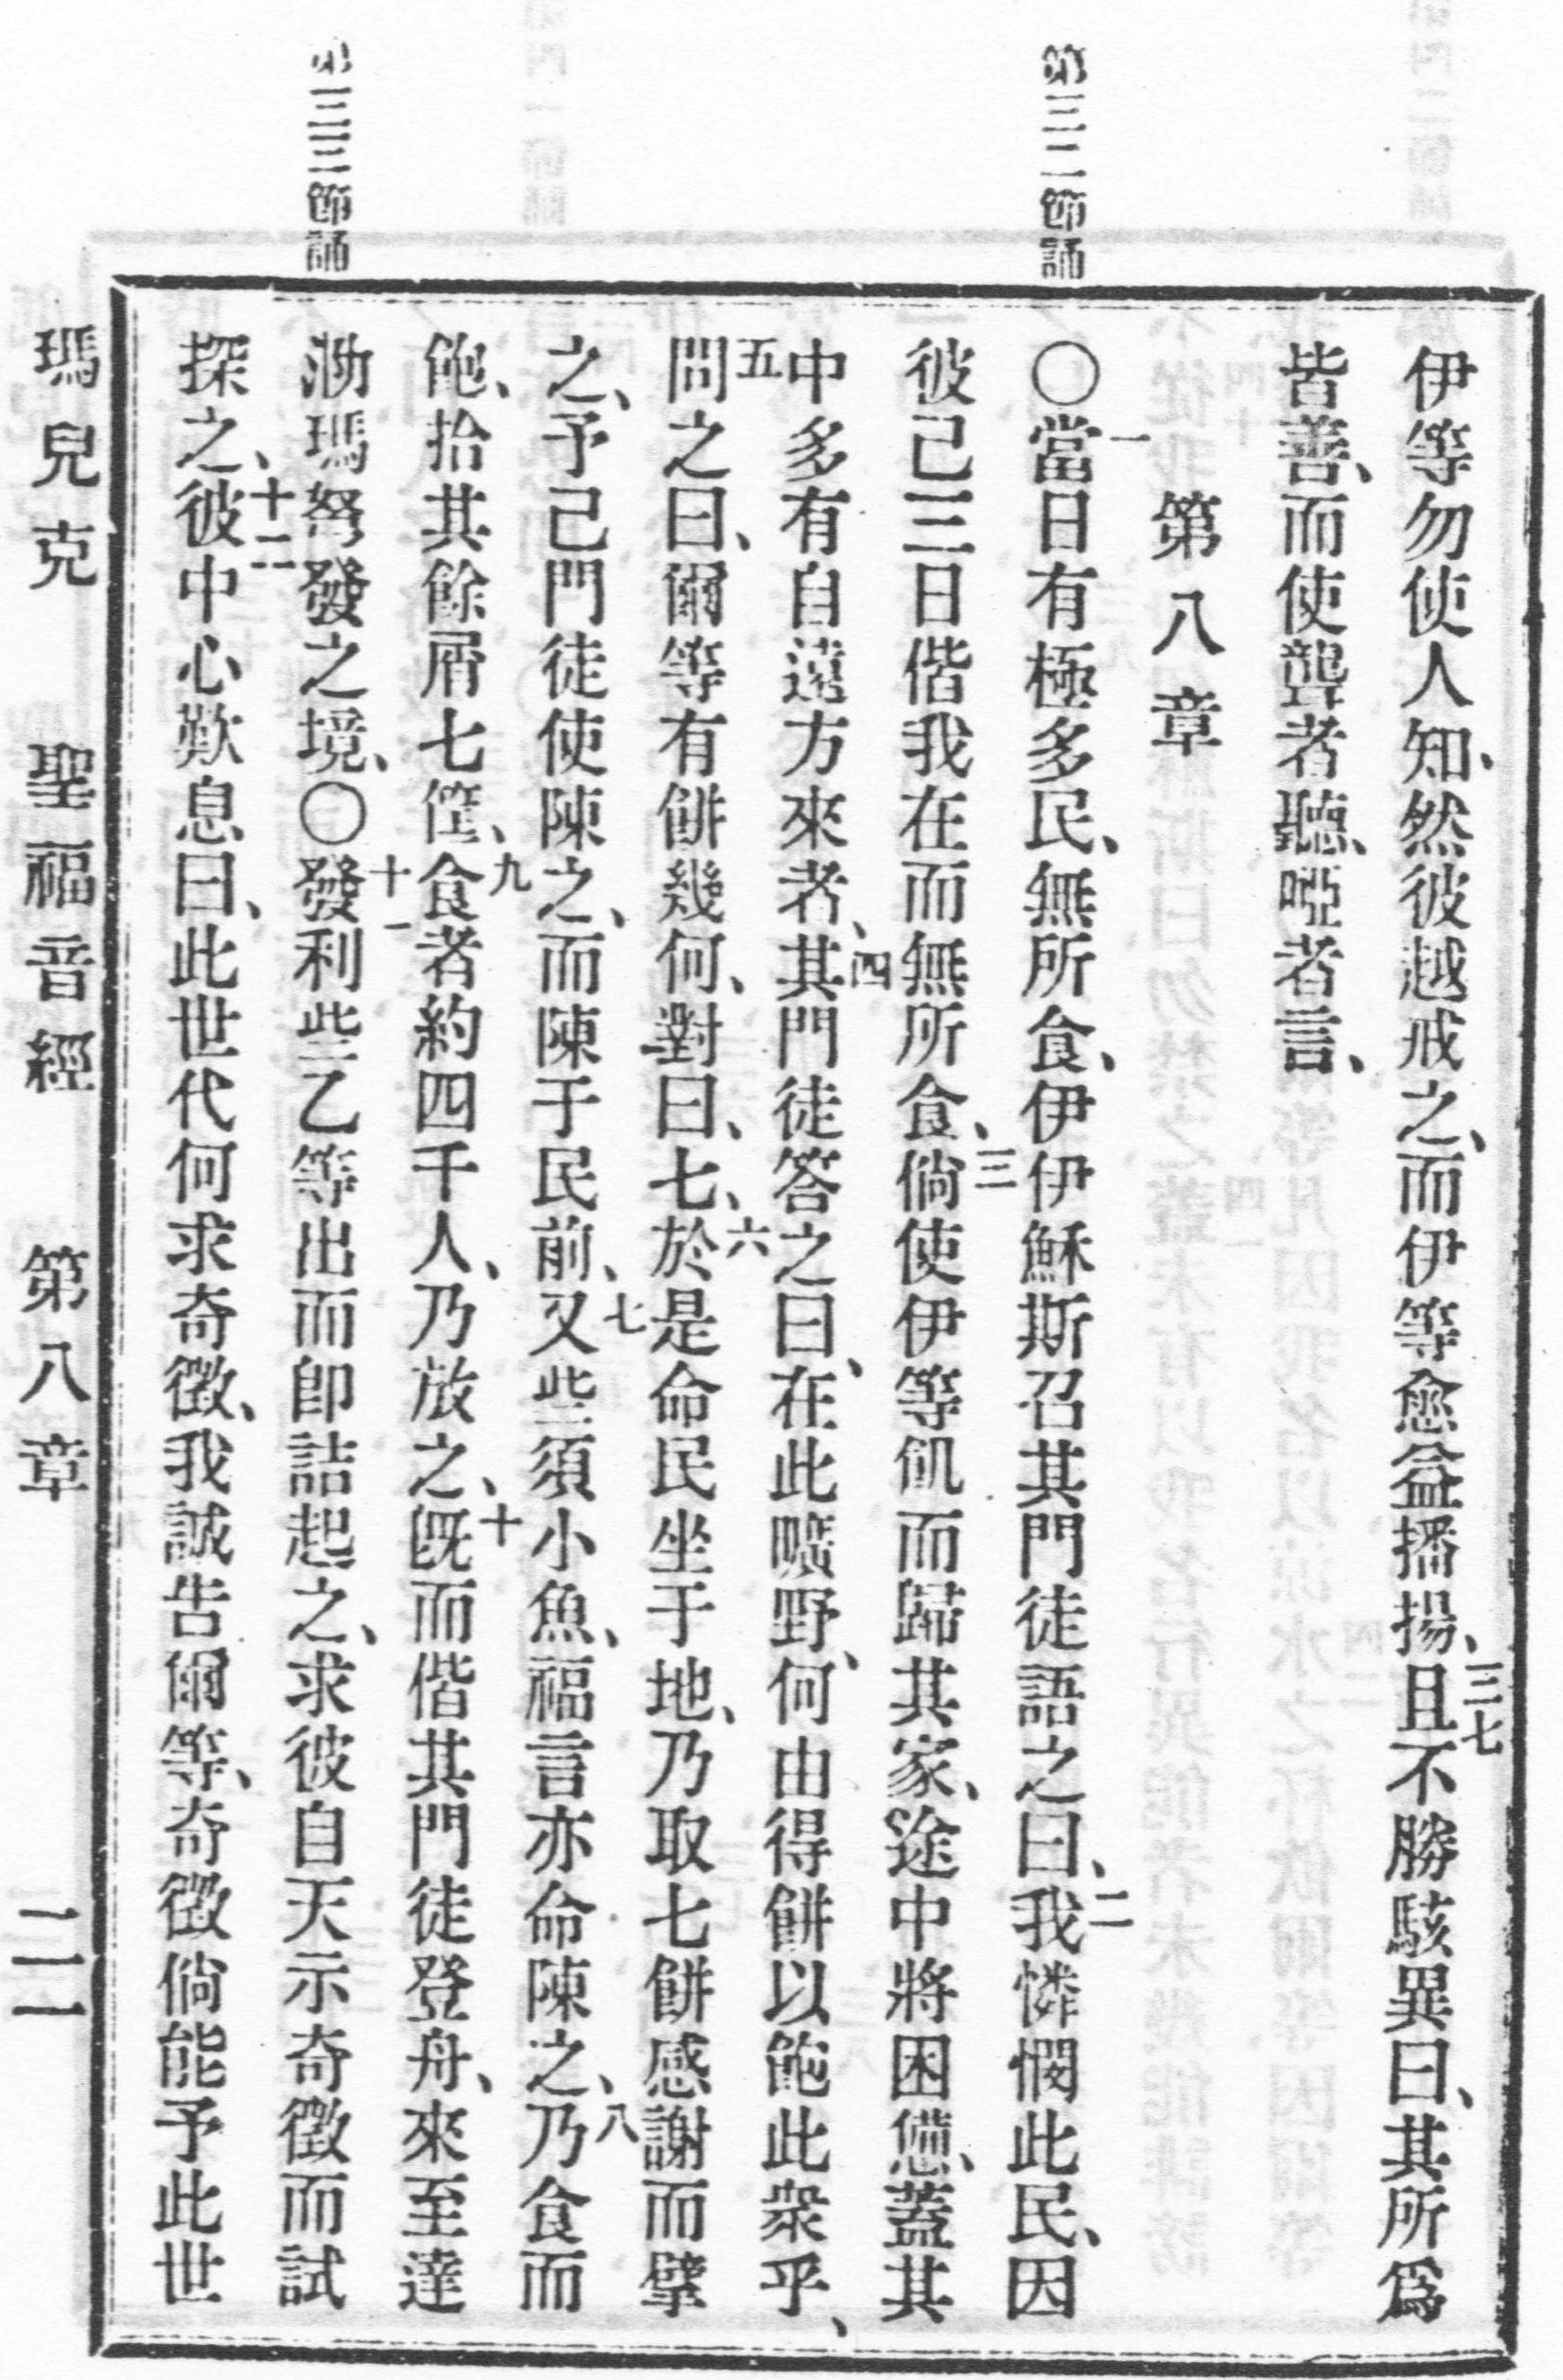 第三二節誦
第三三節誦
伊等勿使人知、然彼越戒之、而伊等愈益播揚、三七且不勝駭異曰、其所爲
皆善、而使聾者聽、啞者言、
第八章
〇一當日有極多民、無所食、伊伊穌斯召其門徒語之曰、二我憐憫此民、因
彼已三日偕我在而無所食、三倘使伊等飢而歸其家、途中將困憊、蓋其
中多有自遠方來者、四其門徒答之曰、在此曠野、何由得餅以飽此衆乎、
五問之曰、爾等有餅幾何、對曰、七、六於是命民坐于地、乃取七餅感謝而擘
之、予己門徒使陳之、而陳于民前、七又些須小魚、福言亦命陳之、八乃食而
飽、拾其餘屑七筐、九食者約四千人、乃放之、十旣而偕其門徒登舟、來至達
泐瑪努發之境、〇十一發利些乙等出而卽詰起之、求彼自天示奇徵而試
探之、十二彼中心歎息曰、此世代何求奇徵、我誠告爾等、奇徵倘能予此世
瑪兒克 聖福音經 第八章 二一